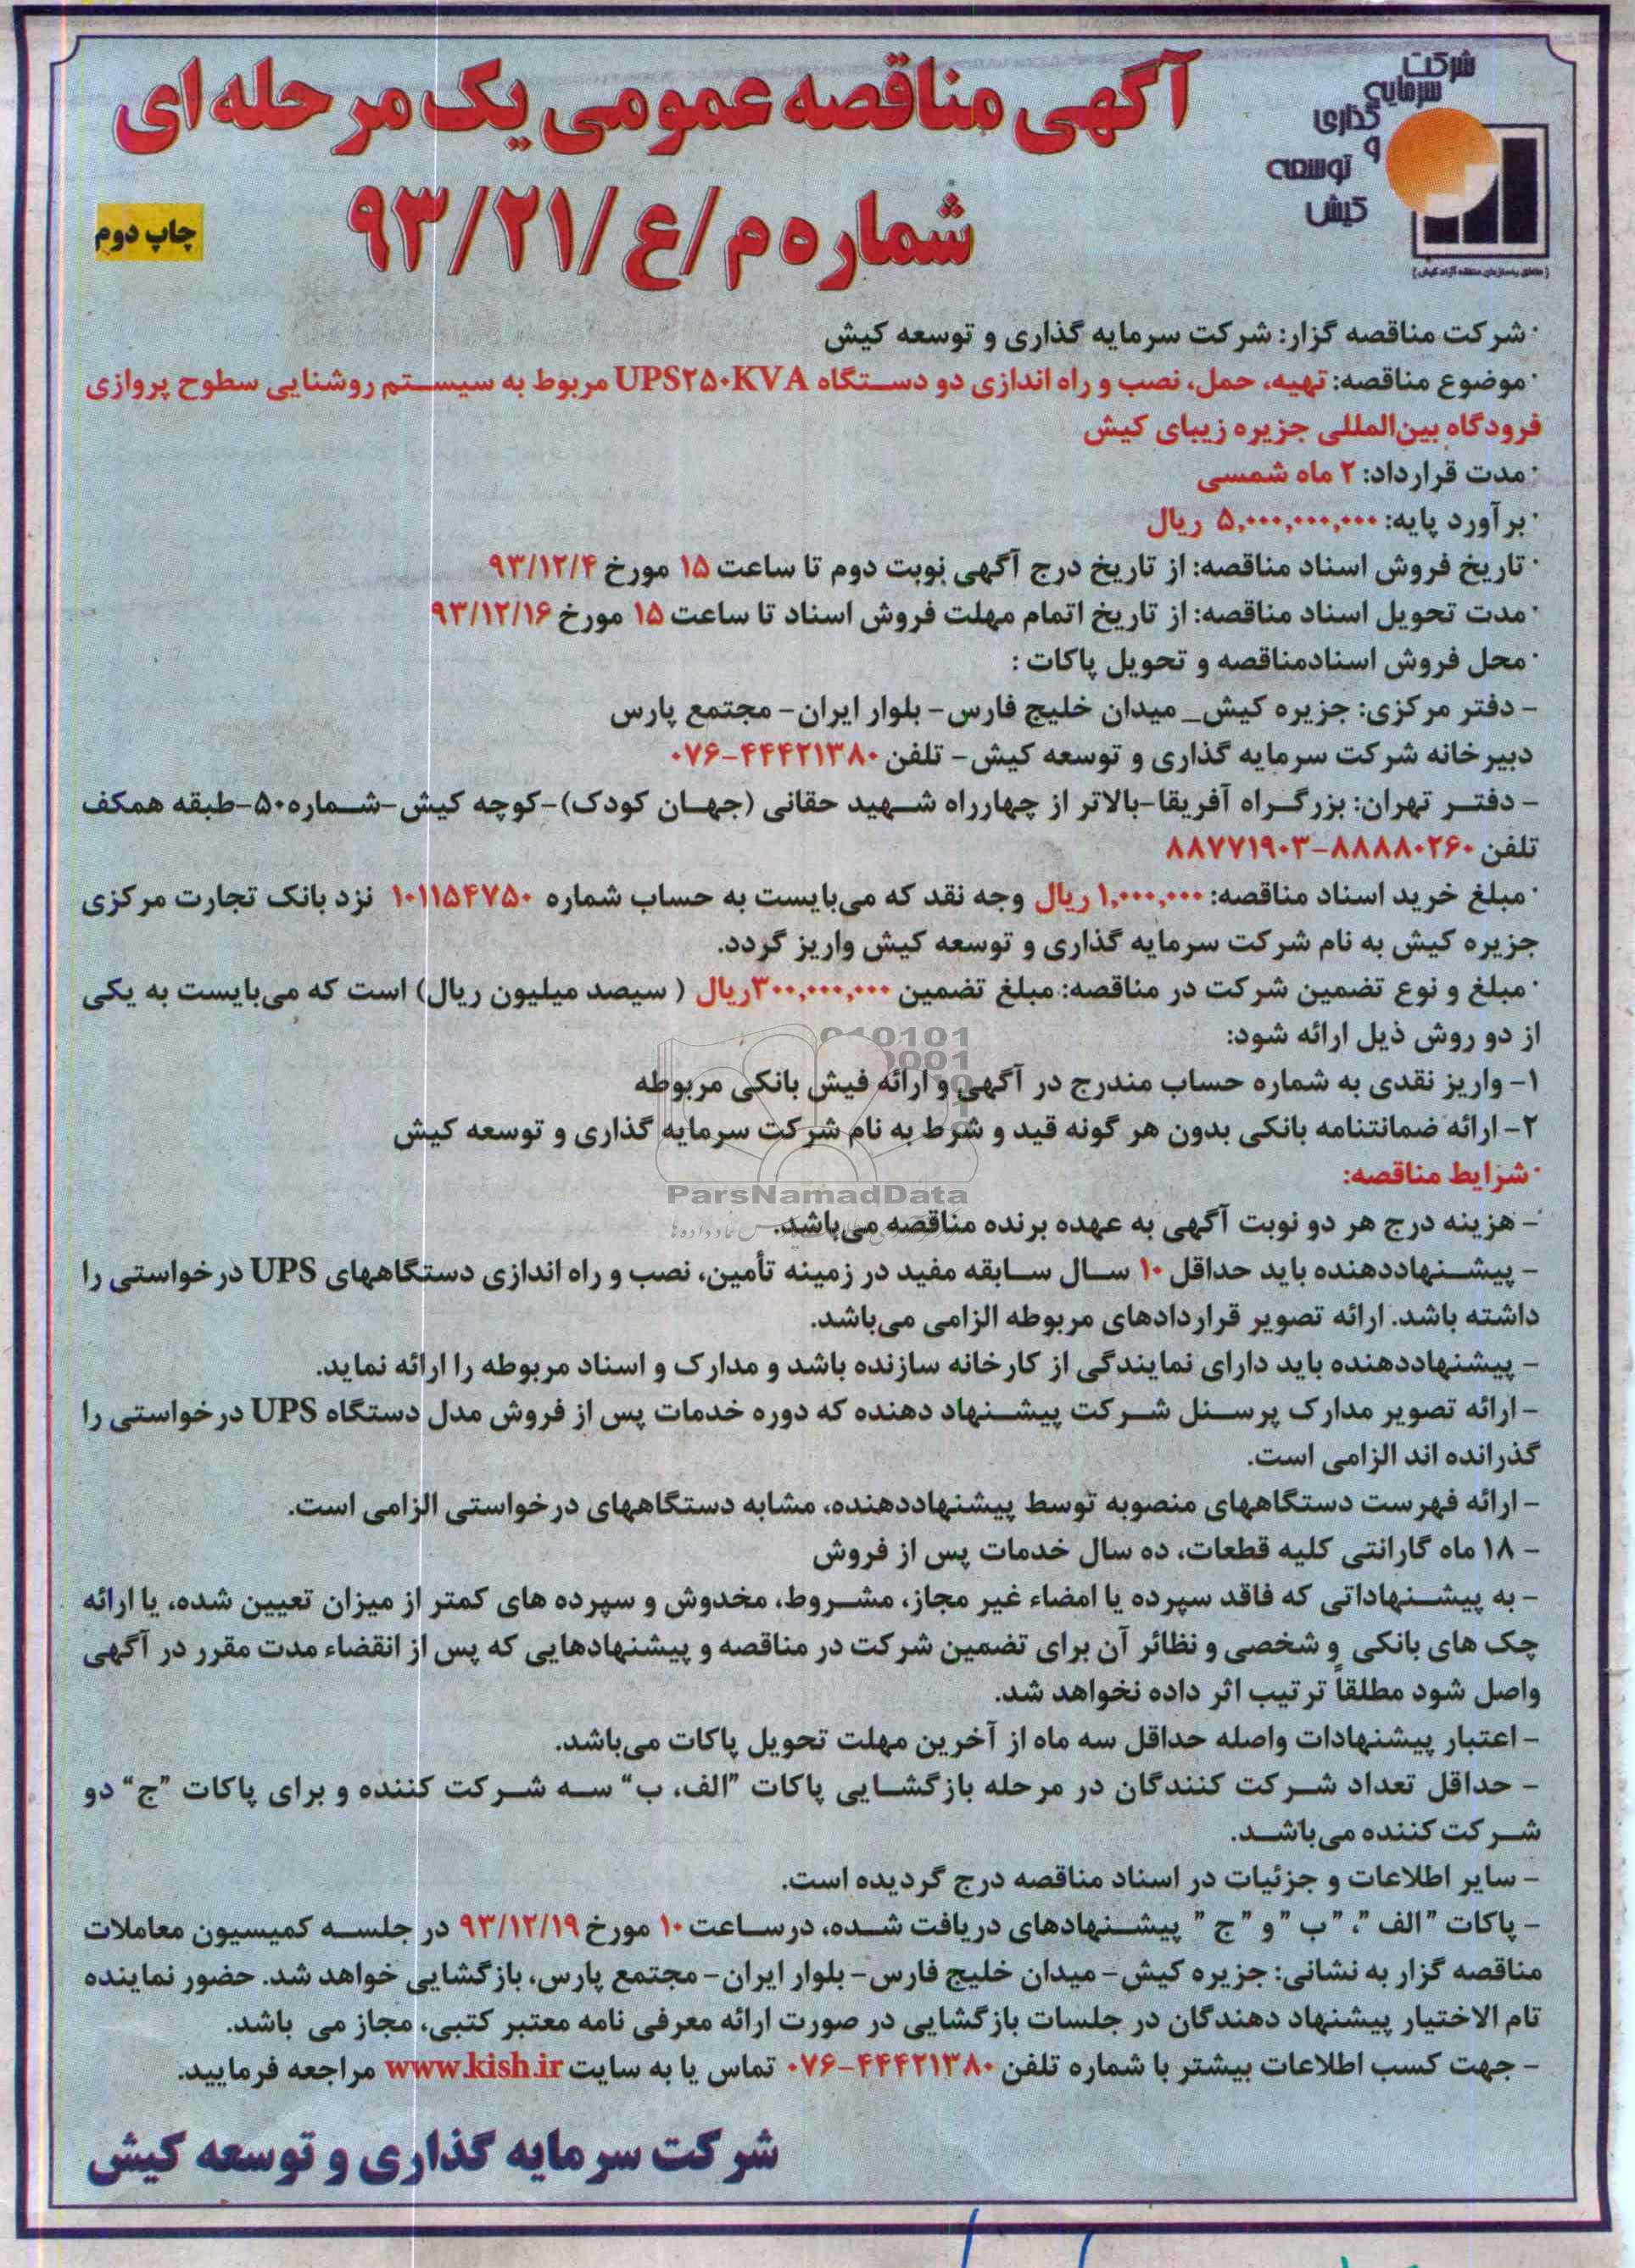 شرکت
سرمایه
گذاری
و
توسعه
کیش
آگهی مناقصه عمومی یک مرحله ای
شماره م/ع/۹۳/۲۱
چاپ دوم
· شرکت مناقصه گزار: شرکت سرمایه گذاری و توسعه کیش
· موضوع مناقصه: تهیه، حمل، نصب و راه اندازی دو دستگاه UPS۲۵۰KVA مربوط به سیستم روشنایی سطوح پروازی
فرودگاه بین‌المللی جزیره زیبای کیش
· مدت قرارداد: ۲ ماه شمسی
· برآورد پایه: ۵,۰۰۰,۰۰۰,۰۰۰ ریال
· تاریخ فروش اسناد مناقصه: از تاریخ درج آگهی نوبت دوم تا ساعت ۱۵ مورخ ۹۳/۱۲/۴
· مدت تحویل اسناد مناقصه: از تاریخ اتمام مهلت فروش اسناد تا ساعت ۱۵ مورخ ۹۳/۱۲/۱۶
· محل فروش اسنادمناقصه و تحویل پاکات :
- دفتر مرکزی: جزیره کیش_ میدان خلیج فارس- بلوار ایران- مجتمع پارس
دبیرخانه شرکت سرمایه گذاری و توسعه کیش- تلفن ۴۴۴۲۱۳۸۰-۰۷۶
- دفتر تهران: بزرگراه آفریقا-بالاتر از چهارراه شهید حقانی (جهان کودک)-کوچه کیش-شماره۵۰-طبقه همکف
تلفن ۸۸۸۸۰۲۶۰-۸۸۷۷۱۹۰۳
· مبلغ خرید اسناد مناقصه: ۱,۰۰۰,۰۰۰ ریال وجه نقد که می‌بایست به حساب شماره ۱۰۱۱۵۴۷۵۰ نزد بانک تجارت مرکزی
جزیره کیش به نام شرکت سرمایه گذاری و توسعه کیش واریز گردد.
· مبلغ و نوع تضمین شرکت در مناقصه: مبلغ تضمین ۳۰۰,۰۰۰,۰۰۰ریال ( سیصد میلیون ریال) است که می‌بایست به یکی
از دو روش ذیل ارائه شود:
۱- واریز نقدی به شماره حساب مندرج در آگهی و ارائه فیش بانکی مربوطه
۲- ارائه ضمانتنامه بانکی بدون هر گونه قید و شرط به نام شرکت سرمایه گذاری و توسعه کیش
· شرایط مناقصه:
ParsNamadData
- هزینه درج هر دو نوبت آگهی به عهده برنده مناقصه می‌باشد.
- پیشنهاددهنده باید حداقل ۱۰ سال سابقه مفید در زمینه تأمین، نصب و راه اندازی دستگاههای UPS درخواستی را
داشته باشد. ارائه تصویر قراردادهای مربوطه الزامی می‌باشد.
- پیشنهاددهنده باید دارای نمایندگی از کارخانه سازنده باشد و مدارک و اسناد مربوطه را ارائه نماید.
- ارائه تصویر مدارک پرسنل شرکت پیشنهاد دهنده که دوره خدمات پس از فروش مدل دستگاه UPS درخواستی را
گذرانده اند الزامی است.
- ارائه فهرست دستگاههای منصوبه توسط پیشنهاددهنده، مشابه دستگاههای درخواستی الزامی است.
- ۱۸ ماه گارانتی کلیه قطعات، ده سال خدمات پس از فروش
- به پیشنهاداتی که فاقد سپرده یا امضاء غیر مجاز، مشروط، مخدوش و سپرده های کمتر از میزان تعیین شده، یا ارائه
چک های بانکی و شخصی و نظائر آن برای تضمین شرکت در مناقصه و پیشنهادهایی که پس از انقضاء مدت مقرر در آگهی
واصل شود مطلقاً ترتیب اثر داده نخواهد شد.
- اعتبار پیشنهادات واصله حداقل سه ماه از آخرین مهلت تحویل پاکات می‌باشد.
- حداقل تعداد شرکت کنندگان در مرحله بازگشایی پاکات ”الف، ب“ سه شرکت کننده و برای پاکات ”ج“ دو
شرکت کننده می‌باشد.
- سایر اطلاعات و جزئیات در اسناد مناقصه درج گردیده است.
- پاکات ”الف ”، ”ب ”و ”ج ” پیشنهادهای دریافت شده، درساعت ۱۰ مورخ ۹۳/۱۲/۱۹ در جلسه کمیسیون معاملات
مناقصه گزار به نشانی: جزیره کیش- میدان خلیج فارس- بلوار ایران- مجتمع پارس، بازگشایی خواهد شد. حضور نماینده
تام الاختیار پیشنهاد دهندگان در جلسات بازگشایی در صورت ارائه معرفی نامه معتبر کتبی، مجاز می باشد.
- جهت کسب اطلاعات بیشتر با شماره تلفن ۴۴۴۲۱۳۸۰-۰۷۶ تماس یا به سایت www.kish.ir مراجعه فرمایید.
شرکت سرمایه گذاری و توسعه کیش